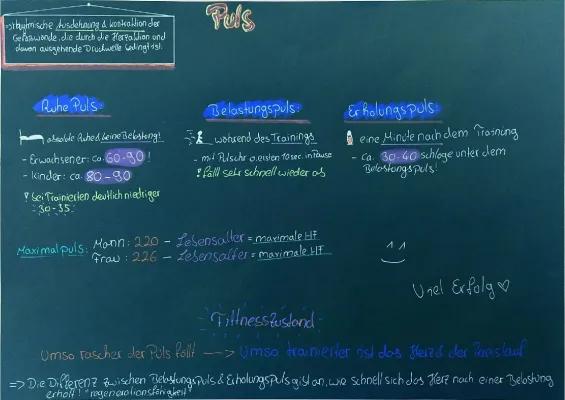 Puls
=> rhythmische Ausdehnung & Kontraktion der
Gefässwände, die durch die Herzaktion und
davon ausgehende Druckwelle bedingt ist.
Ruhe Puls:
absolute Ruhe & keine Belastung!
- Erwachsener: ca. 60-90!
- Kinder: ca. 80-90
! bei Trainierten deutlich niedriger
30-35
Belastungspuls:
während des Trainings
- mit Pulsuhr o. ersten 10 sec. in Pause
! fällt sehr schnell wieder ab
Erholungspuls:
eine Minute nach dem Training
- ca. 30-40 schläge unter dem
Belastungspuls!
Maximalpuls:
Mann: 220 - Lebensalter = maximale HF
Frau: 226 - Lebensalter = maximale HF
Viel Erfolg ♡
Fittnesszustand
Umso rascher der Puls fällt --> Umso trainierter ist das Herz & der Kreislauf
=> Die Differenz zwischen Belastungspuls & Erholungspuls gibt an, wie schnell sich das Herz nach einer Belastung
erholt! "regenerationsfähigkeit"